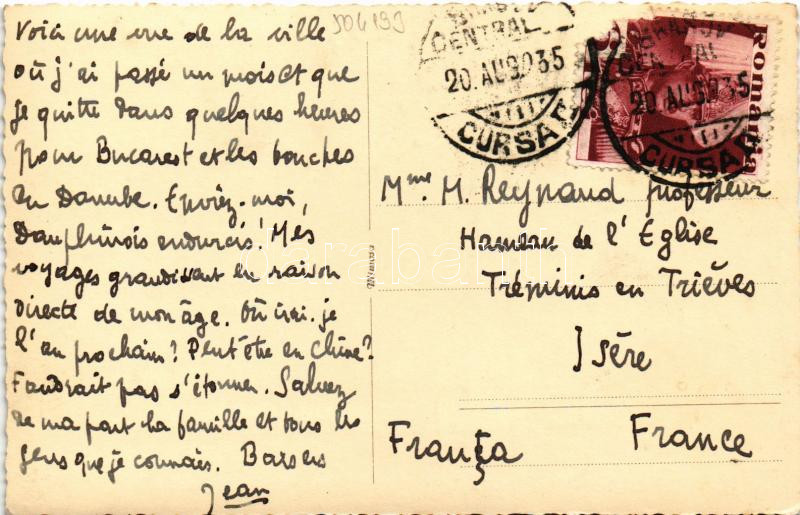 Voici une vue de la ville
où j'ai passé un mois et que
je quitte dans quelques heures
pour Bucarest et les bouches
du Danube. Enviez-moi,
Dauphinois endurcis! Mes
voyages grandissent en raison
directe de mon âge. Où irai-je
l'an prochain? Peut être en Chine?
Faudrait pas s'étonner. Saluez
de ma part la famille et tous les
gens que je connais. Baisers
Jean
504199
CENTRAL
20. AU 935
CURSA
ROMANIA
CENTRAL
20 AU 935
CURSA
Mme M. Reynaud professeur
Hameau de l'Église
Tréminis en Trièves
Isère
Franța France
darabanth